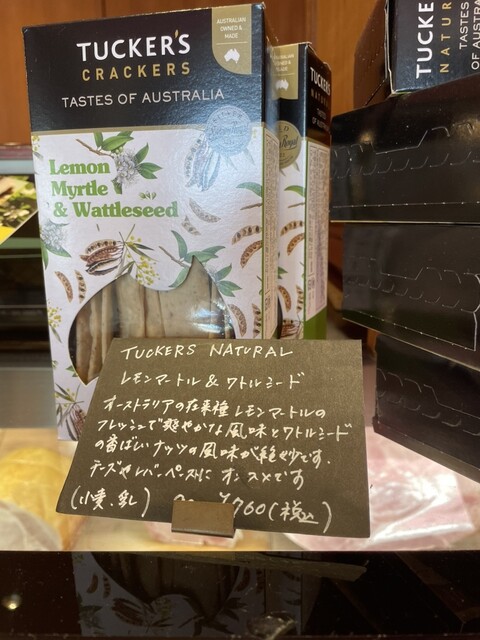 TUCKER'S
CRACKERS
TASTES OF AUSTRALIA
AUSTRALIAN
OWNED &
MADE
Lemon
Myrtle
& Wattleseed
TUCKER'S
NATURAL
TUCKER
NATUR
TASTES
OF AUS
TUCKERS NATURAL
レモンマートル & ワトルシード
オーストラリアの在来種 レモンマートルの
フレッシュで爽やかな風味とワトルシード
の香ばしいナッツの風味が絶妙です.
チーズやレバーペーストに オススメです
(小麦、乳)
¥760(税込)